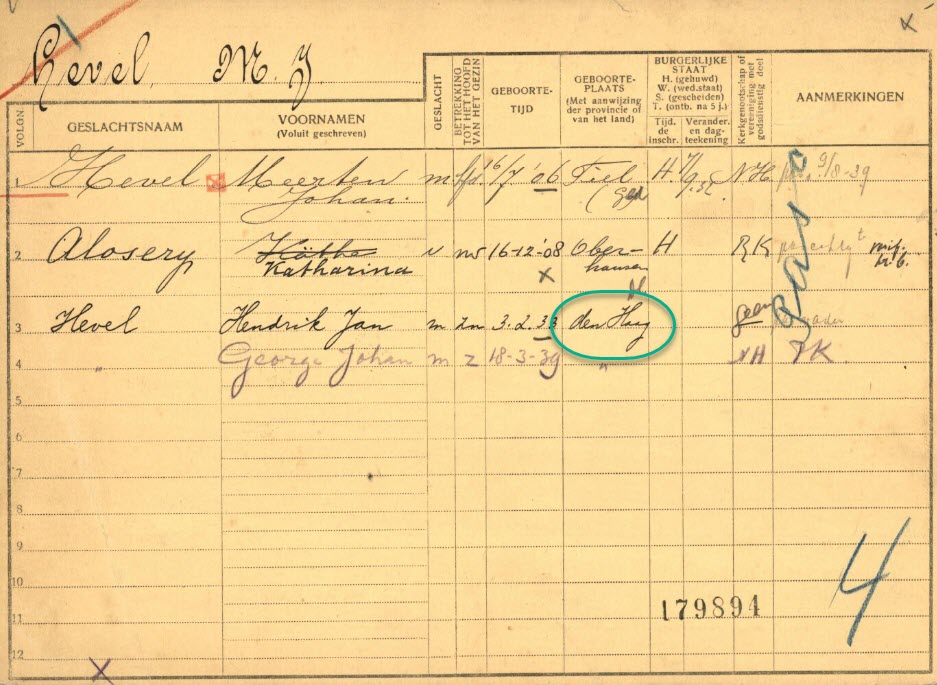 Hevel, M. J.
VOLGN
GESLACHTSNAAM
VOORNAMEN
(Voluit geschreven)
GESLACHT
BETREKKING
TOT HET HOOFD
VAN HET GEZIN
GEBOORTE-
TIJD
GEBOORTE-
PLAATS
(Met aanwijzing
der provincie of
van het land)
BURGERLIJKE
STAAT
H. (gehuwd)
W. (wed.staat)
S. (gescheiden)
T. (ontb. na 5 j.)
Tijd.
de
inschr.
Verander.
en dag-
teekening
Kerkgenootschap of
vereeniging met
godsdienstig doel
AANMERKINGEN
1 Hevel Meerten m hfd. 16/7 '06 Tiel H. NH 9/8-39
Johan. Gld
2 Alosery Käthe v 16-12-'08 Ober- H RK
Katharina hausen
x
3 Hevel Hendrik Jan m zn 3.2.33 den Haag geen
4 " George Johan m z 18-3-39 " NH PK
gas
5
6
7
8
9
10
179894
4
11
12
x